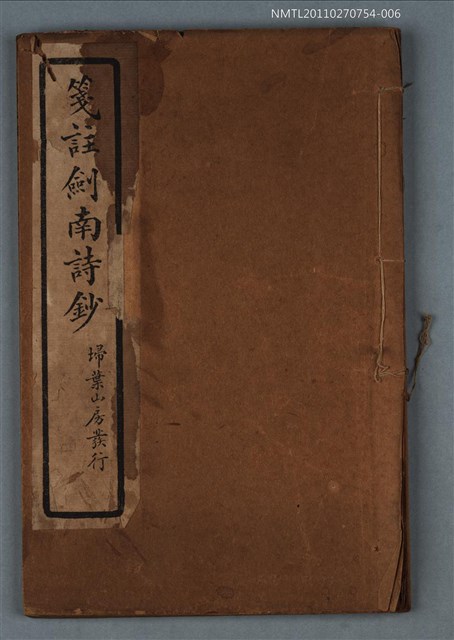 NMTL20110270754-006
箋註劍南詩鈔
埽葉山房發行